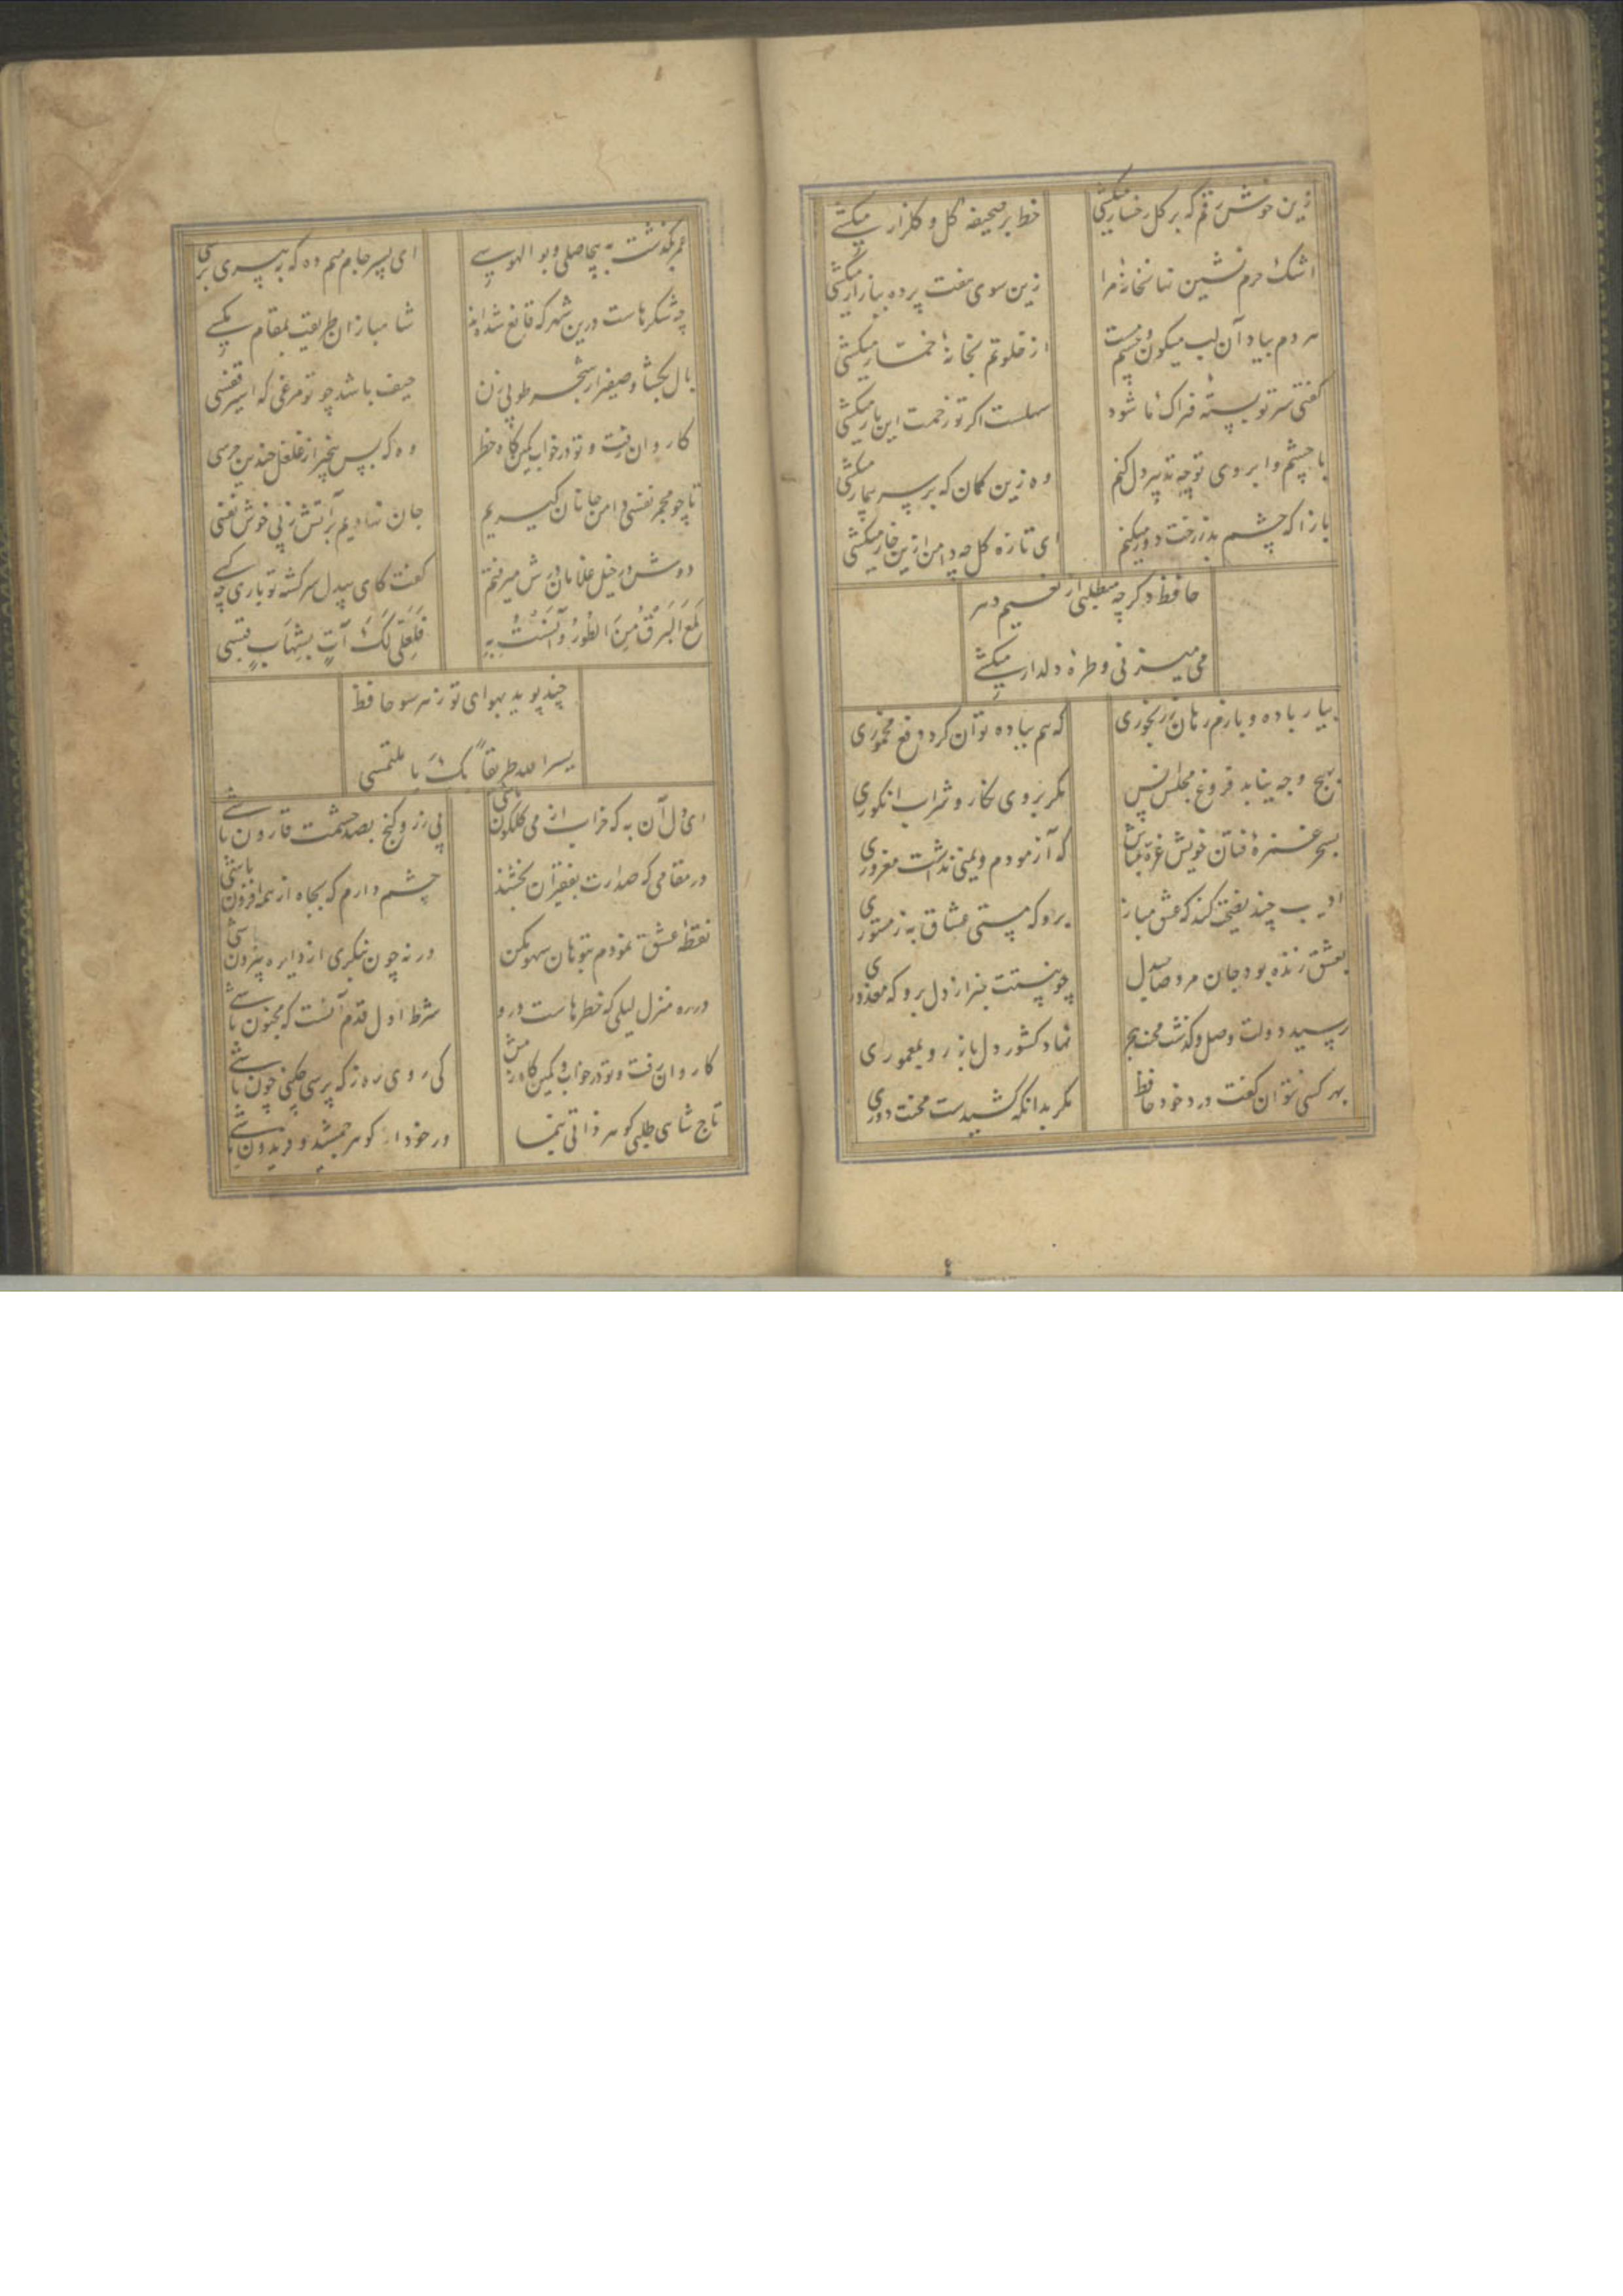 زین خوش رقم که بر کل رخسار میکشی
خط بر صحیفه کل و کلزار میکشی
اشک حرم نشین نهانخانه مرا
زین سوی هفت پرده ببازار میکشی
هر دم بیاد آن لب میکون و چشم مست
از خلوتم بخانه خمار میکشی
کفتی سر تو بسته فتراک ما شود
سهلست اکر تو زحمت این بار میکشی
با چشم و ابروی تو چه تدبیر دل کنم
وه زین کمان که بر سر بیمار میکشی
بازا که چشم بد ز رخت دور میکنم
ای تازه کل چه دامن ازین خار میکشی
حافظ دکر چه میطلبی از نعیم دهر
می میزنی و طره دلدار میکشی
بیار باده و بازم رهان ز رنجوری
که هم بباده توان کرد دفع مخموری
بهیچ وجه نیابد فروغ مجلس انس
مکر بروی نکار و شراب انکوری
بسحر غمزه فتان خویش غره مباش
که آزمودم و یمنی نداشت مغروری
ادیب چند نصیحت کند که عشق مباز
برو که مستی عشاق به ز مستوری
بعشق زنده بود جان مرد صاحبدل
چو نیستت خبر از دل برو که معذوری
رسید دولت وصل و کذشت محنت هجر
نهاد کشور دل باز رو بمعموری
بهر کسی نتوان کفت درد خود حافظ
مکر بدانکه کشیدست محنت دوری
عمر بکذشت به بیحاصلی و بو الهوسی
ای پسر جام میم ده که به پیری برسی
چه شکرهاست درین شهر که قانع شده اند
شاهبازان طریقت بمقام مکسی
بال بکشا و صفیر از شجر طوبی زن
حیف باشد چو تو مرغی که اسیر قفسی
کاروان رفت و تو در خواب کمین کاه خطر
وه که بس بیخبر از غلغل چندین جرسی
تا چو مجمر نفسی دامن جانان کیریم
جان نهادیم بر آتش ز پی خوش نفسی
دوش در خیل غلامان درش میرفتم
کفت کای بیدل سرکشته تو باری چه کسی
لَمَعَ البَرقُ مِنَ الطُورُ وَ آنَستُ بِهِ
فَلَعَلّی لَکَ آتٍ بِشِهَابٍ قَبَسی
چند پوید بهوای تو ز هر سو حافظ
یسر الله طریقاً بک یا ملتمسی
ای دل آن به که خراب از می کلکون باشی
بی زر و کنج بصد حشمت قارون باشی
در مقامی که صدارت بفقیران بخشند
چشم دارم که بجاه از همه افزون باشی
نقطه عشق نمودم بتو هان سهو مکن
ورنه چون بنکری از دایره بیرون باشی
در ره منزل لیلی که خطرهاست درو
شرط اول قدم آنست که مجنون باشی
کاروان رفت و تو در خواب و کمین کاه در پیش
کی روی ره ز که پرسی چکنی چون باشی
تاج شاهی طلبی کوهر ذاتی بنما
ور خود از کوهر جمشید و فریدون باشی